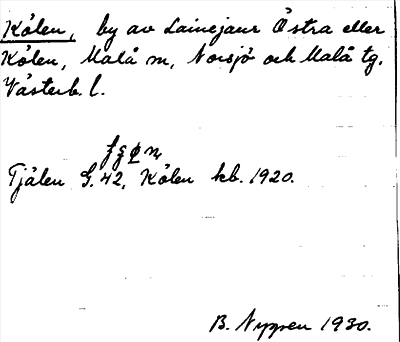 Kölen, by av Lainejaur Östra eller
Kölen, Malå sn, Norsjö och Malå tg.
Västerb. l.
Tjålen G. 42, Kölen kb. 1920.
B. Nyqvist 1930.